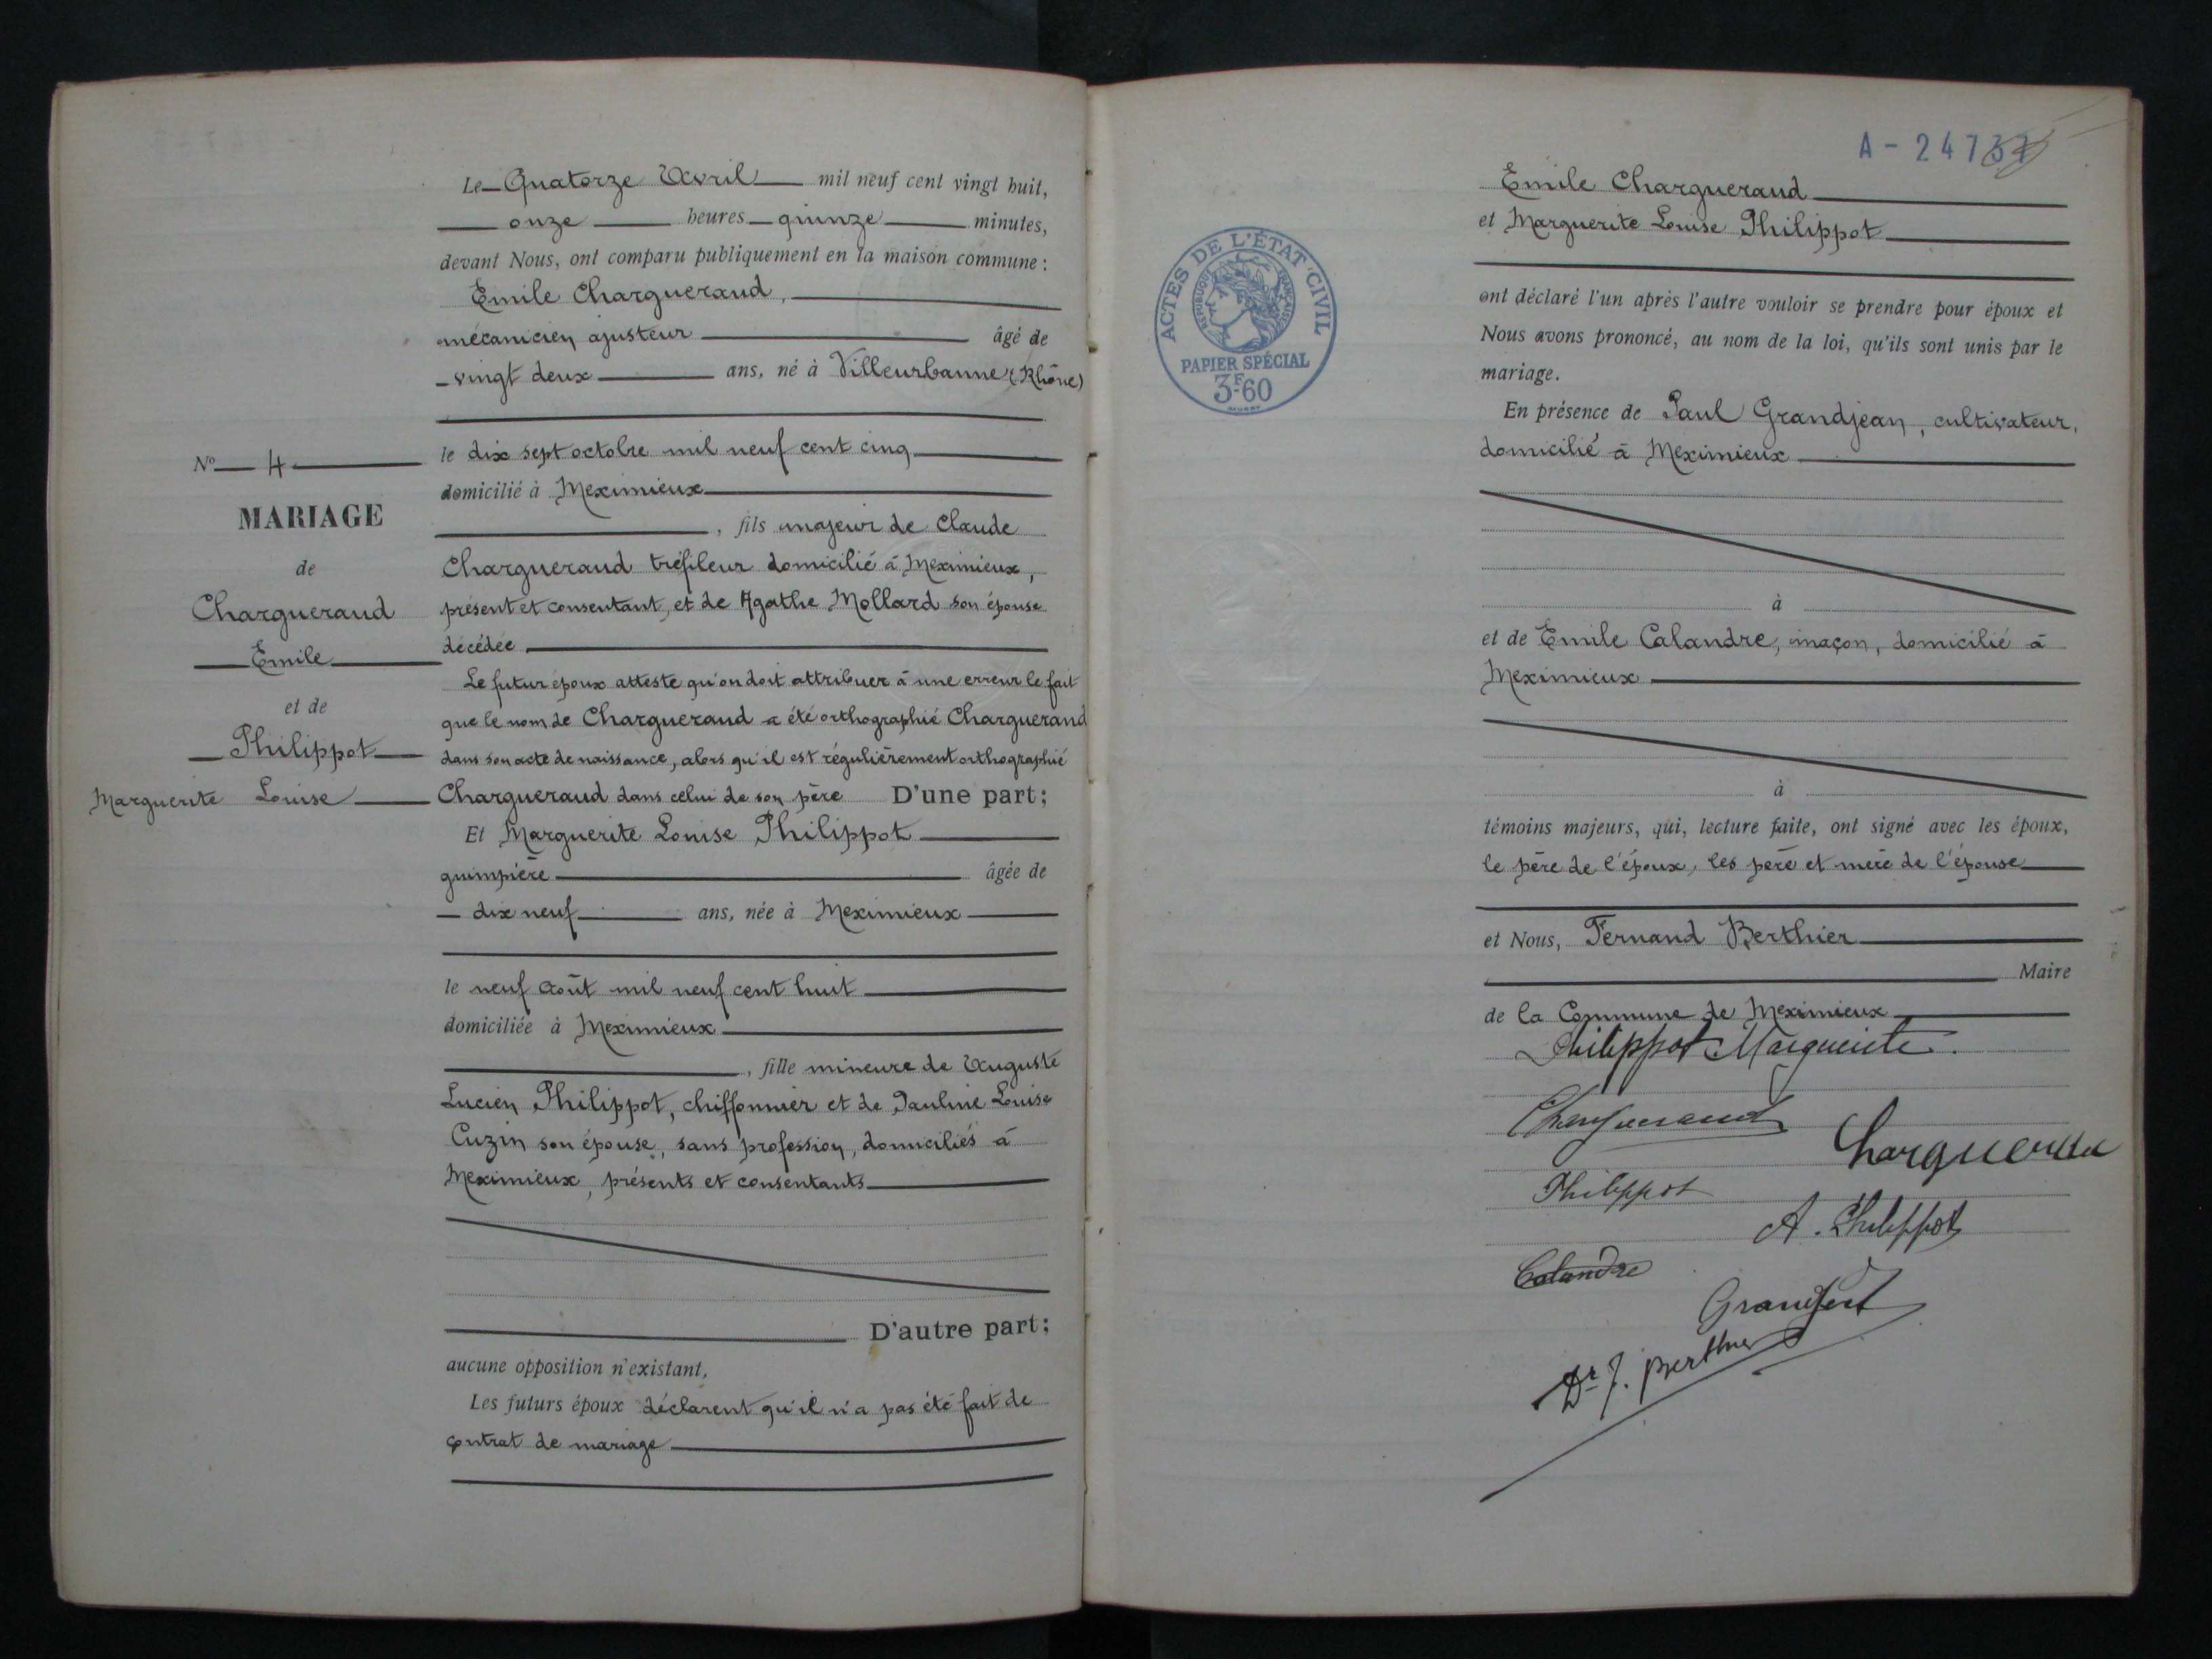 Le Quatorze Avril mil neuf cent vingt huit,
onze heures quinze minutes,
devant Nous, ont comparu publiquement en la maison commune :
Emile Chargueraud,
mécanicien ajusteur âgé de
vingt deux ans, né à Villeurbanne (Rhône)
le dix sept octobre mil neuf cent cinq
domicilié à Meximieux
, fils majeur de Claude
Chargueraud tréfileur domicilié à Meximieux,
présent et consentant, et de Agathe Mollard son épouse
décédée
Le futur époux atteste qu'on doit attribuer à une erreur le fait
que le nom de Chargueraud a été orthographié Charguerand
dans son acte de naissance, alors qu'il est régulièrement orthographié
Chargueraud dans celui de son père D'une part;
Et Marguerite Louise Philippot
guimpière âgée de
dix neuf ans, née à Meximieux
le neuf août mil neuf cent huit
domiciliée à Meximieux
, fille mineure de Auguste
Lucien Philippot, chiffonnier et de Pauline Louise
Cuzin son épouse, sans profession, domiciliés à
Meximieux, présents et consentants
D'autre part;
aucune opposition n'existant,
Les futurs époux déclarent qu'il n'a pas été fait de
contrat de mariage
N° 4
MARIAGE
de
Chargueraud
Emile
et de
Philippot
Marguerite Louise
ACTES DE L'ÉTAT CIVIL
RÉPUBLIQUE FRANÇAISE
PAPIER SPÉCIAL
3F60
A - 2473
Emile Chargueraud
et Marguerite Louise Philippot
ont déclaré l'un après l'autre vouloir se prendre pour époux et
Nous avons prononcé, au nom de la loi, qu'ils sont unis par le
mariage.
En présence de Paul Grandjean, cultivateur,
domicilié à Meximieux
à
et de Emile Calandre, maçon, domicilié à
Meximieux
à
témoins majeurs, qui, lecture faite, ont signé avec les époux,
le père de l'époux, les père et mère de l'épouse
et Nous, Fernand Berthier
Maire
de la Commune de Meximieux
Philippot Marguerite.
Chargueraud
Chargueraud
Philippot
A. Philippot
Calandre
Dr F. Berthier